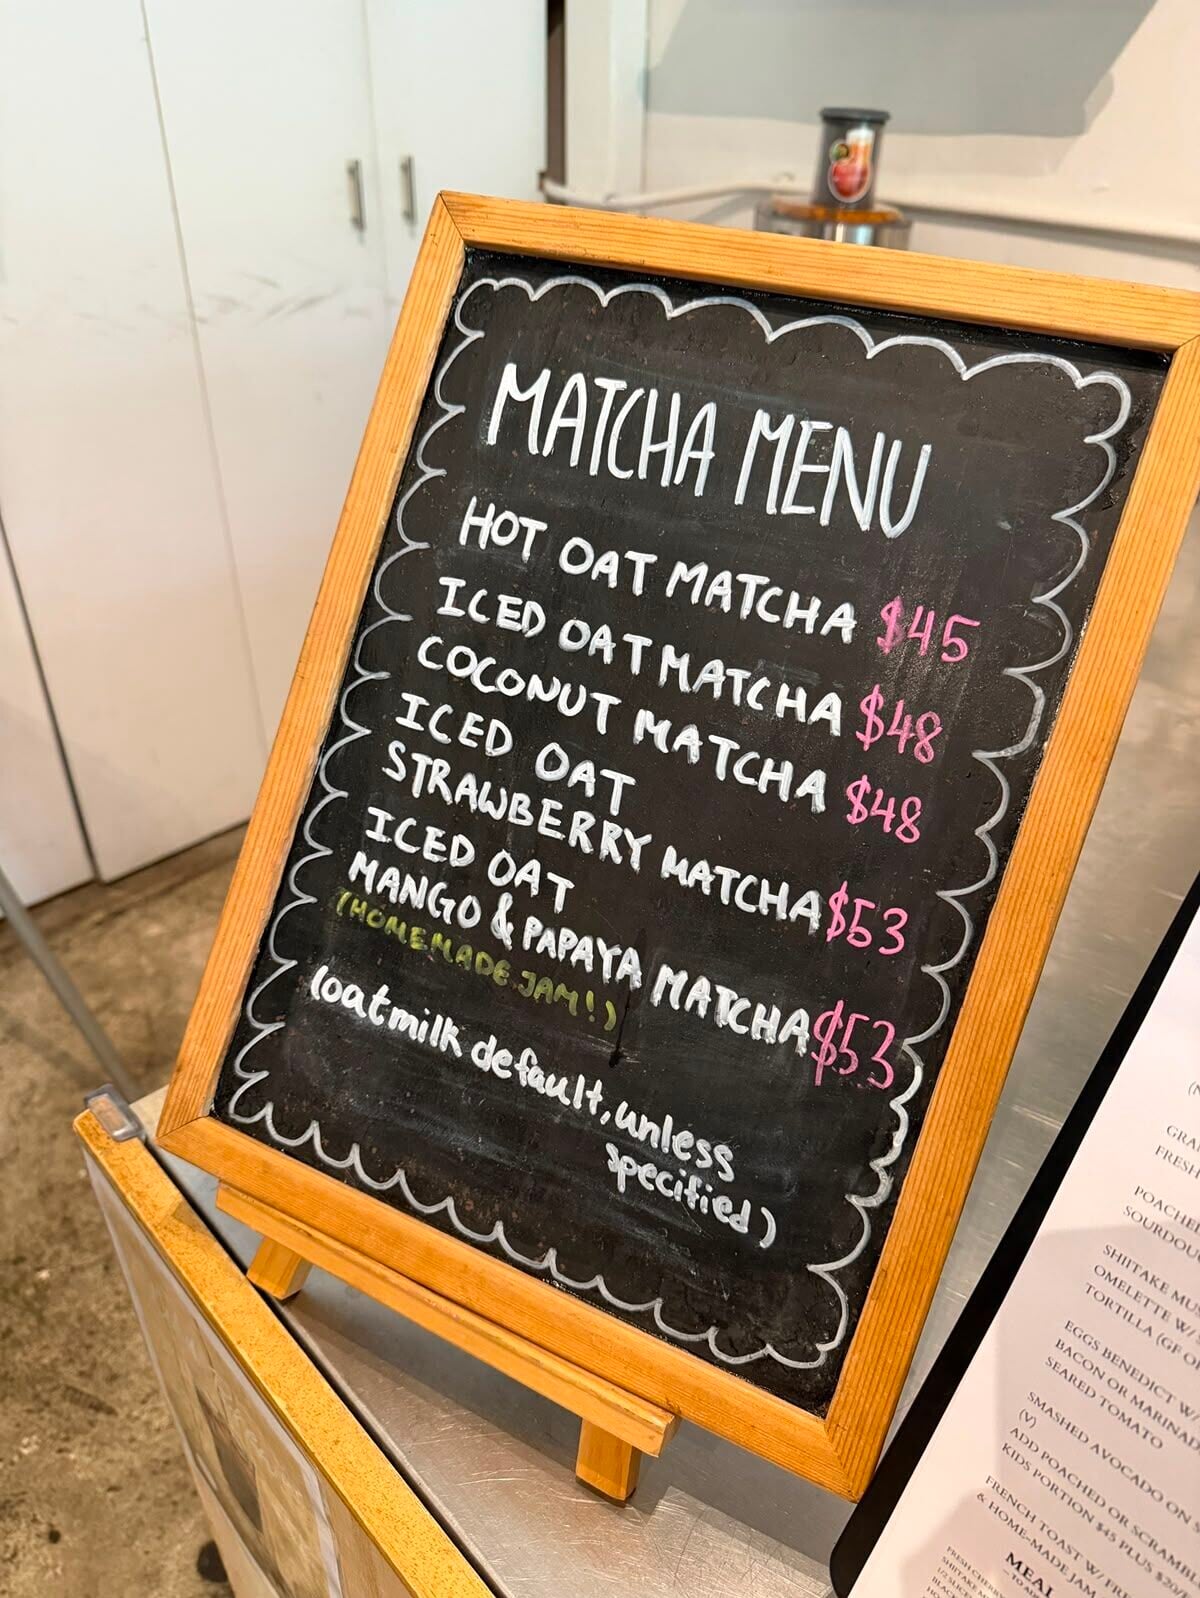 MATCHA MENU
HOT OAT MATCHA $45
ICED OAT MATCHA $48
COCONUT MATCHA $48
ICED OAT
STRAWBERRY MATCHA $53
ICED OAT
MANGO & PAPAYA MATCHA $53
(HOMEMADE JAM!)
(oatmilk default, unless
specified)
FRESH
POACHED
SHIITAKE
OMELETTE W/
TORTILLA (GF
EGGS BENEDICT W/
BACON OR
SEARED TOMATO
SMASHED AVOCADO ON
(V)
ADD POACHED OR
KIDS PORTION $45 PLUS
FRENCH TOAST W/
& HOME-MADE JAM
FRESH